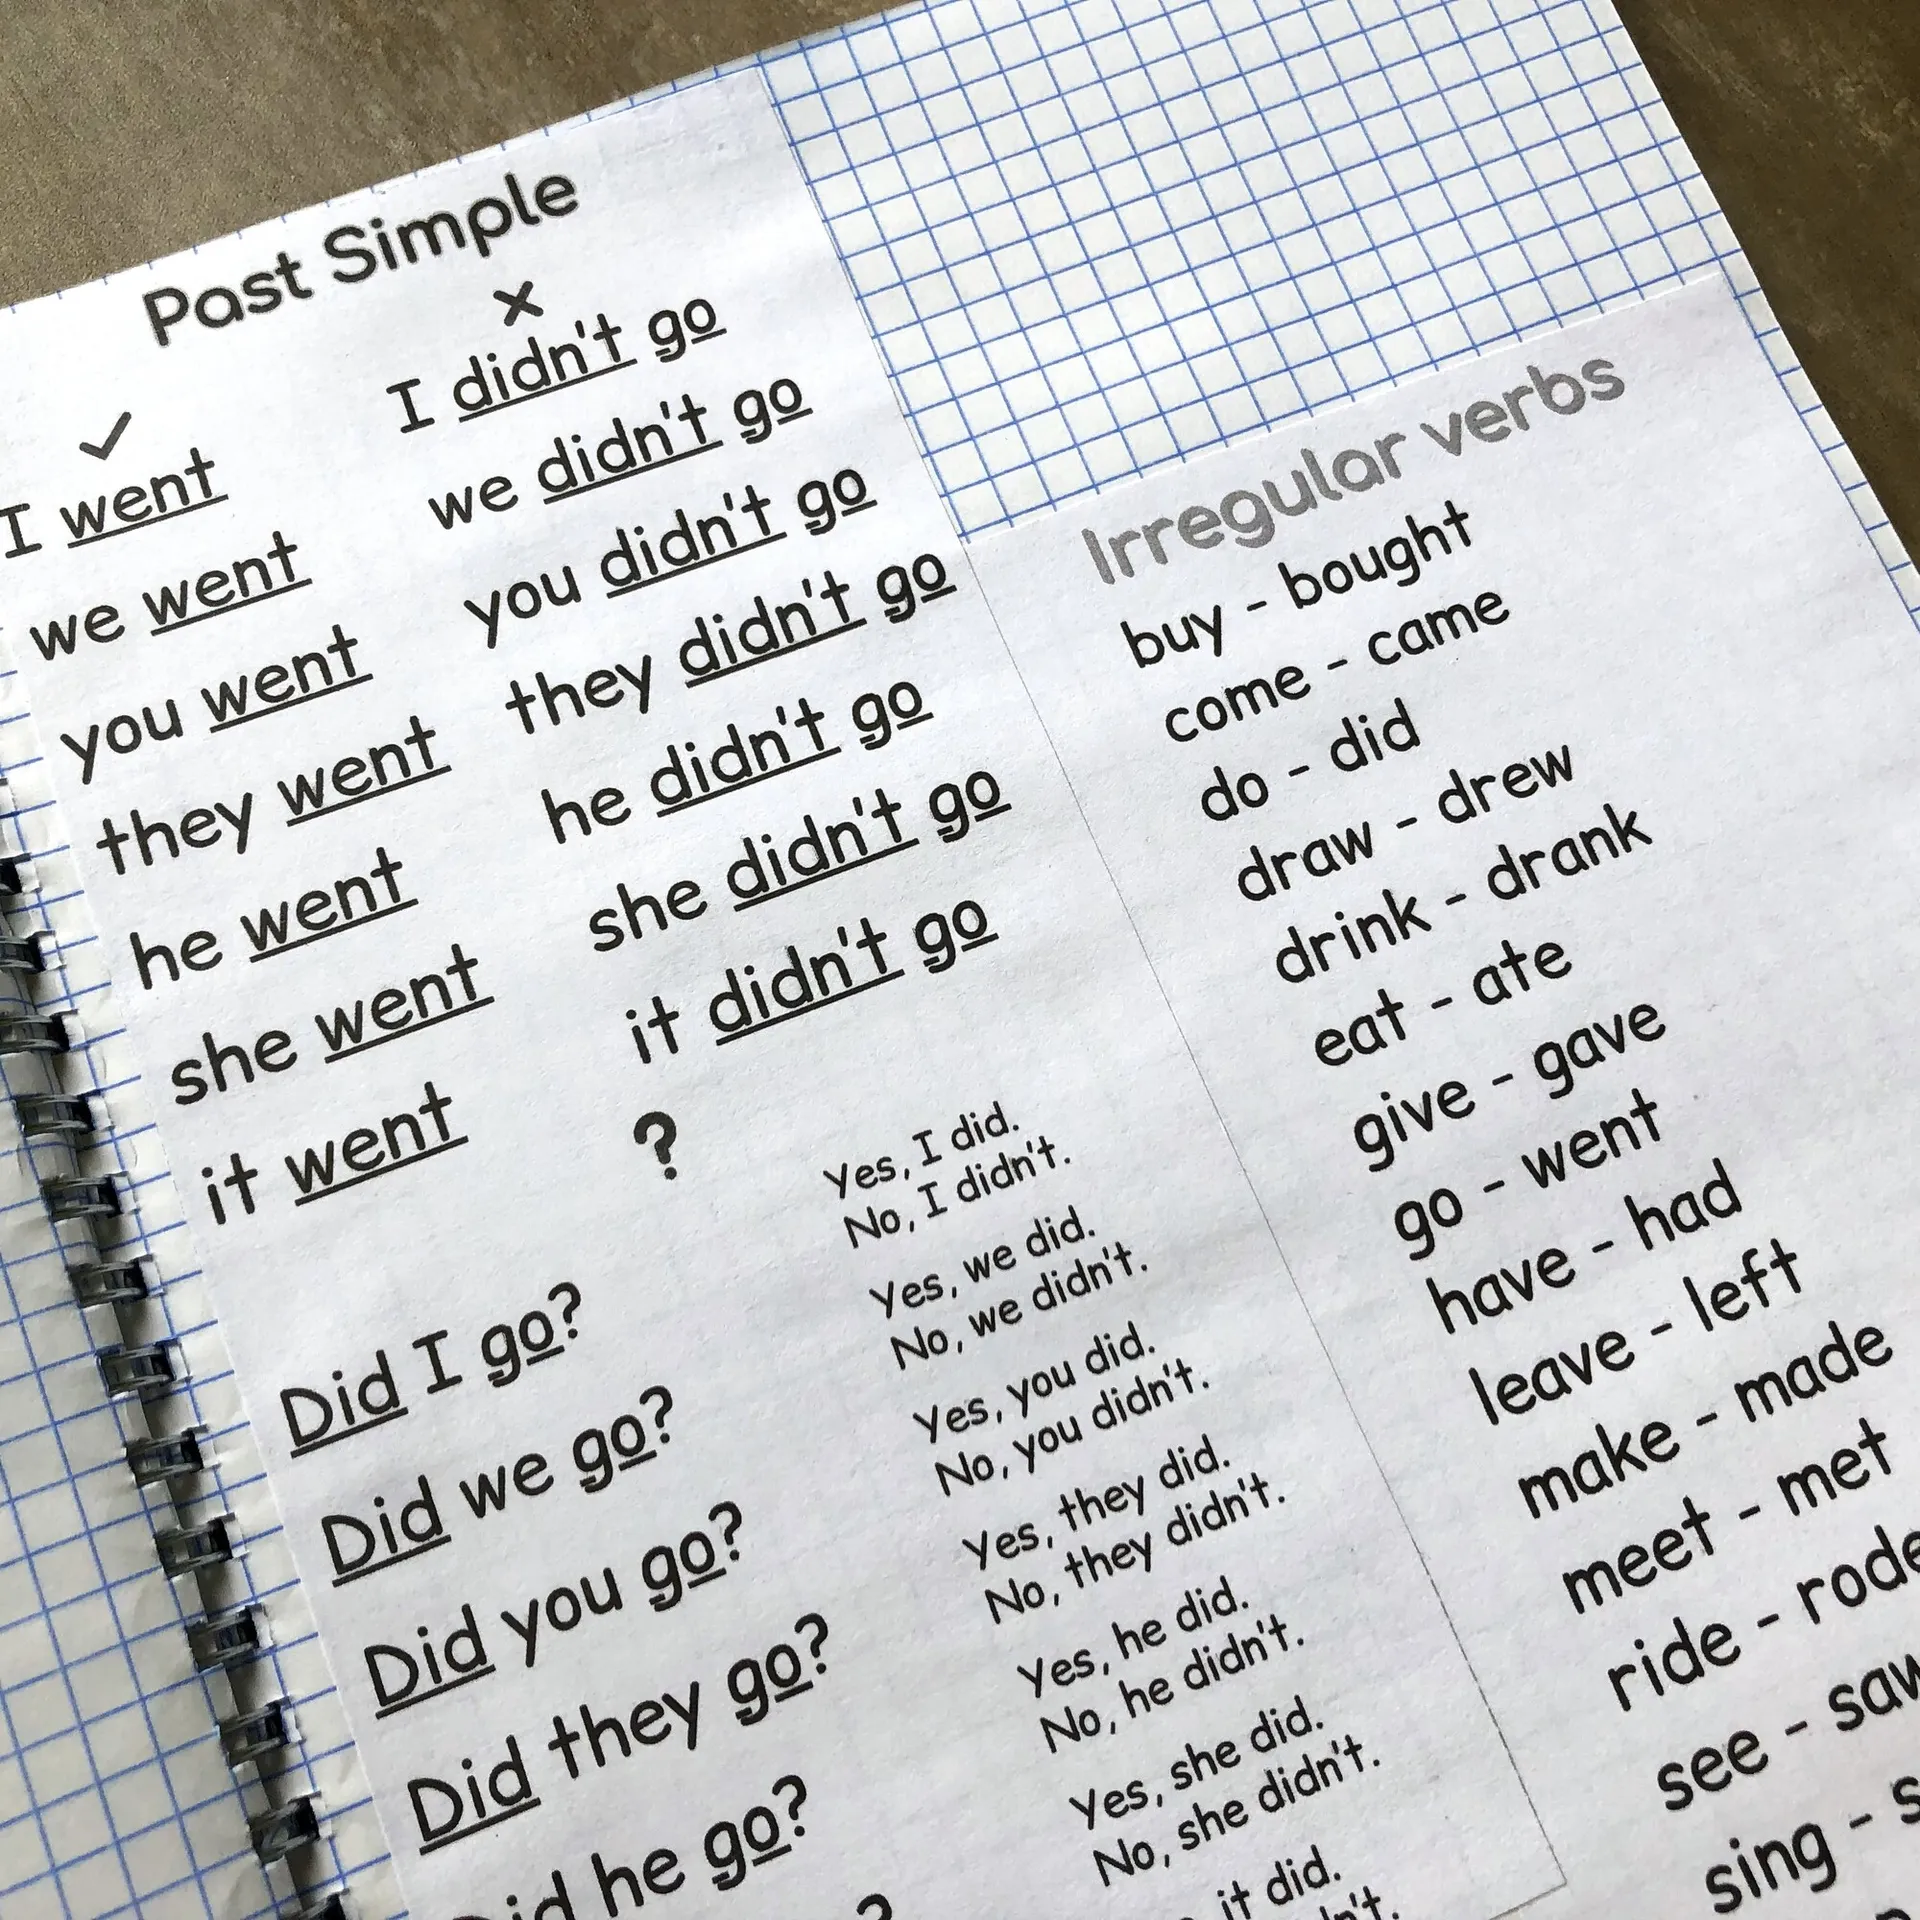 Past Simple
✓
I went
we went
you went
they went
he went
she went
it went
×
I didn't go
we didn't go
you didn't go
they didn't go
he didn't go
she didn't go
it didn't go
?
Did I go?
Did we go?
Did you go?
Did they go?
he go?
?
Yes, I did.
No, I didn't.
Yes, we did.
No, we didn't.
Yes, you did.
No, you didn't.
Yes, they did.
No, they didn't.
Yes, he did.
No, he didn't.
Yes, she did.
No, she didn't.
it did.
Irregular verbs
buy - bought
come - came
do - did
draw - drew
drink - drank
eat - ate
give - gave
go - went
have - had
leave - left
make - made
meet - met
ride - rode
see - saw
sing -